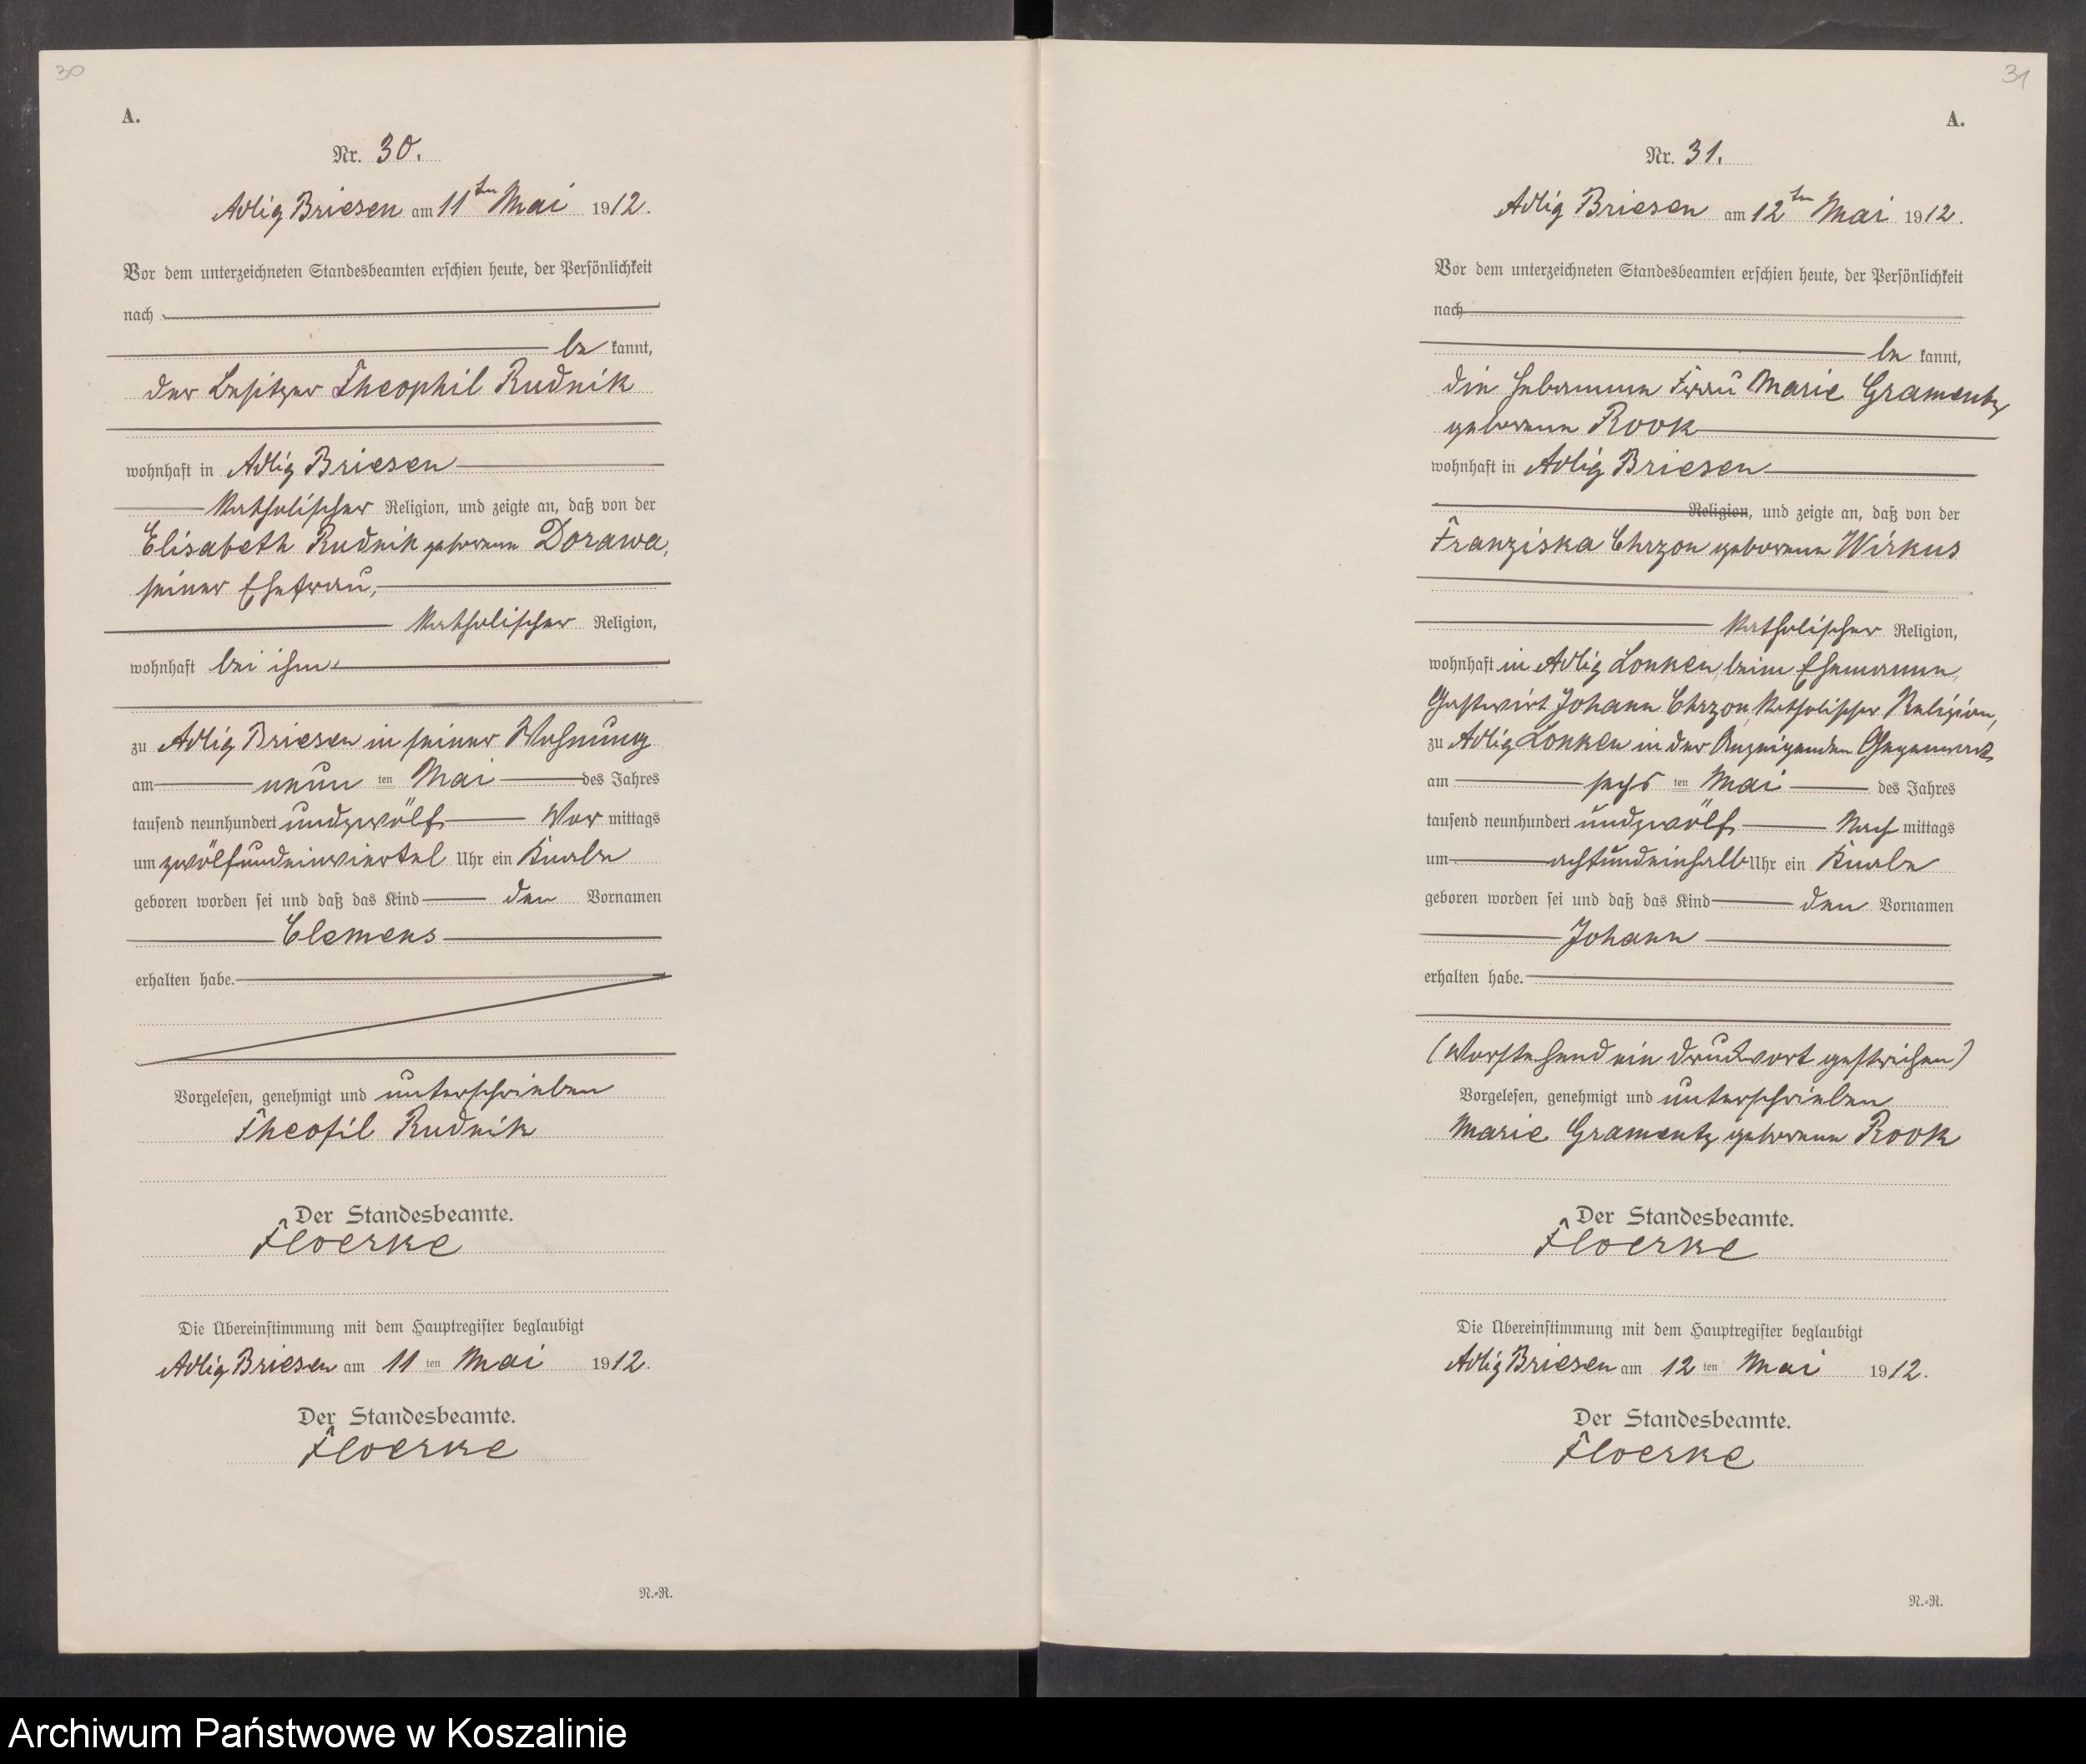 30
A.
Nr. 30.
Adlig Briesen am 11ten Mai 1912.
Vor dem unterzeichneten Standesbeamten erschien heute, der Persönlichkeit
nach
be kannt,
der Besitzer Theophil Rudnik
wohnhaft in Adlig Briesen
katholischer Religion, und zeigte an, daß von der
Elisabeth Rudnik geborenen Dorawa,
seiner Ehefrau,
katholischer Religion,
wohnhaft bei ihm,
zu Adlig Briesen in seiner Wohnung
am neun ten Mai des Jahres
tausend neunhundert undzwölf Vor mittags
um zwölfundeinviertel Uhr ein Knabe
geboren worden sei und daß das Kind den Vornamen
Clemens
erhalten habe.
Vorgelesen, genehmigt und unterschrieben
Theofil Rudnik
Der Standesbeamte.
Floerke
Die Übereinstimmung mit dem Hauptregister beglaubigt
Adlig Briesen am 11 ten Mai 1912.
Der Standesbeamte.
Floerke
N.-R.
31
A.
Nr. 31.
Adlig Briesen am 12ten Mai 1912.
Vor dem unterzeichneten Standesbeamten erschien heute, der Persönlichkeit
nach
be kannt,
die Hebamme Frau Marie Gramentz
geborene Rook
wohnhaft in Adlig Briesen
Religion, und zeigte an, daß von der
Franziska Chrzon geborenen Wirkus
katholischer Religion,
wohnhaft in Adlig Lonken, beim Ehemanne,
Gastwirt Johann Chrzon, katholischer Religion,
zu Adlig Lonken in der Anzeigenden Gegenwart
am sechs ten Mai des Jahres
tausend neunhundert undzwölf Nach mittags
um achtundeinhalb Uhr ein Knabe
geboren worden sei und daß das Kind den Vornamen
Johann
erhalten habe.
(Vorstehend ein Druckwort gestrichen)
Vorgelesen, genehmigt und unterschrieben
Marie Gramentz geborene Rook
Der Standesbeamte.
Floerke
Die Übereinstimmung mit dem Hauptregister beglaubigt
Adlig Briesen am 12 ten Mai 1912.
Der Standesbeamte.
Floerke
N.-R.
Archiwum Państwowe w Koszalinie